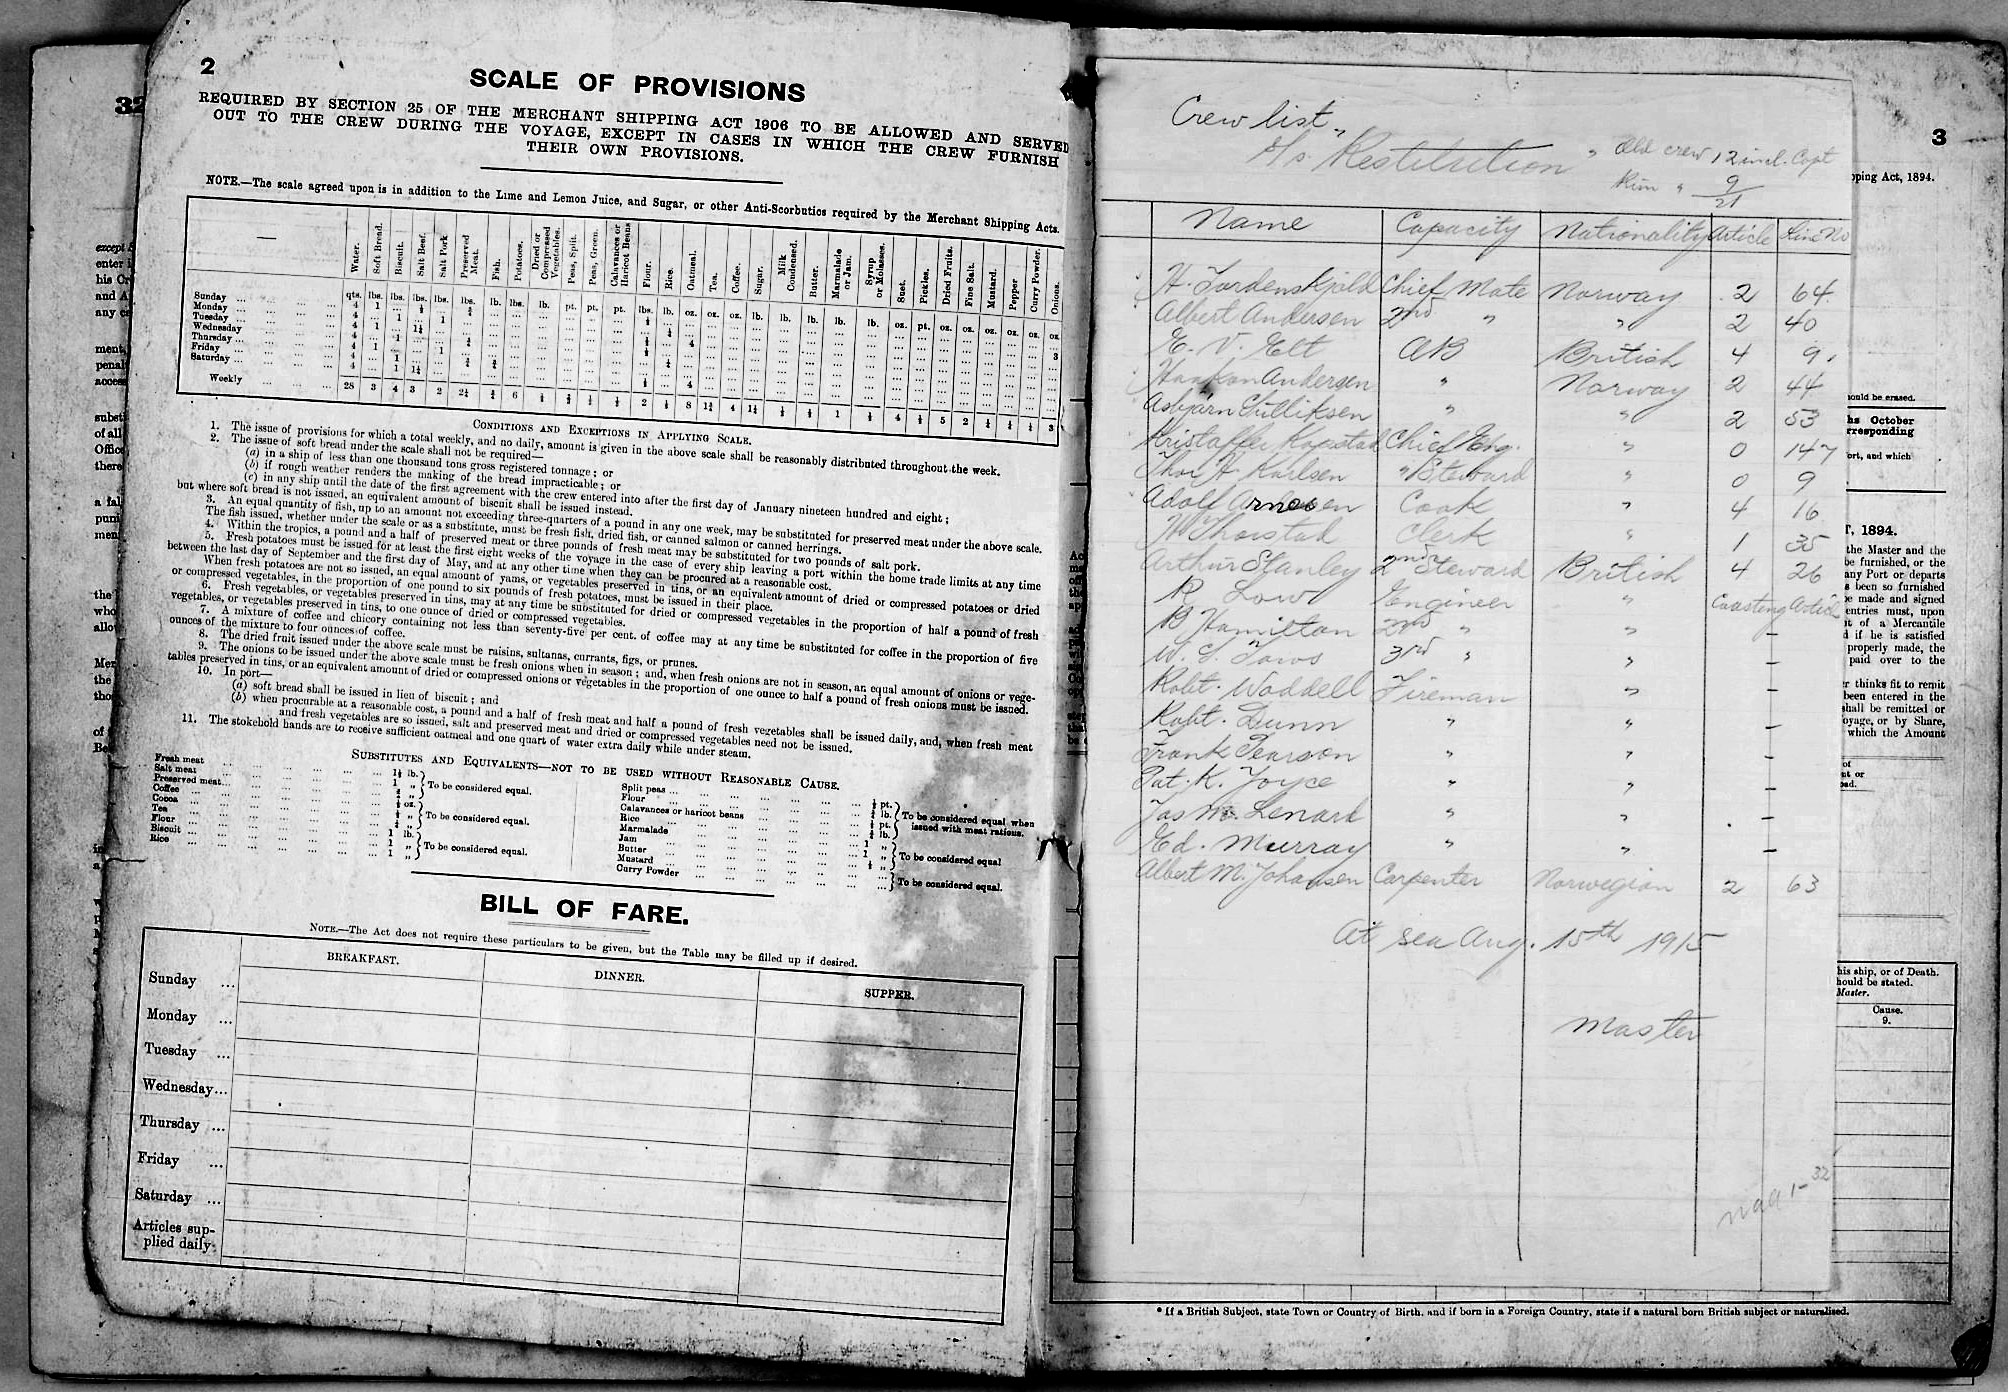 32
2
SCALE OF PROVISIONS
REQUIRED BY SECTION 25 OF THE MERCHANT SHIPPING ACT 1906 TO BE ALLOWED AND SERVED
OUT TO THE CREW DURING THE VOYAGE, EXCEPT IN CASES IN WHICH THE CREW FURNISH
THEIR OWN PROVISIONS.
NOTE.—The scale agreed upon is in addition to the Lime and Lemon Juice, and Sugar, or other Anti-Scorbutics required by the Merchant Shipping Acts.
Water. Soft Bread. Biscuit. Salt Beef. Salt Pork Preserved Meat. Fish. Potatoes. Dried or Compressed Vegetables. Peas, Split. Peas, Green. Calavances or Haricot Beans Flour. Rice. Oatmeal. Tea. Coffee. Sugar. Milk Condensed. Butter. Marmalade or Jam. Syrup or Molasses. Suet. Pickles. Dried Fruits. Fine Salt. Mustard. Pepper Curry Powder. Onions.
qts. lbs. lbs. lbs. lbs. lbs. lb. lbs. lb. pt. pt. pt. lbs. lb. oz. oz. oz. lb. lb. lb. lb. lb. oz. pt. oz. oz. oz. oz. oz. oz
Sunday
Monday
Tuesday
Wednesday
Thursday
Friday
Saturday
Weekly
CONDITIONS AND EXCEPTIONS IN APPLYING SCALE.
1. The issue of provisions for which a total weekly, and no daily, amount is given in the above scale shall be reasonably distributed throughout the week.
2. The issue of soft bread under the scale shall not be required—
(a) in a ship of less than one thousand tons gross registered tonnage; or
(b) if rough weather renders the making of the bread impracticable; or
(c) in any ship until the date of the first agreement with the crew entered into after the first day of January nineteen hundred and eight;
but where soft bread is not issued, an equivalent amount of biscuit shall be issued instead.
3. An equal quantity of fish, up to an amount not exceeding three-quarters of a pound in any one week, may be substituted for preserved meat under the above scale.
The fish issued, whether under the scale or as a substitute, must be fresh fish, dried fish, or canned salmon or canned herrings.
4. Within the tropics, a pound and a half of preserved meat or three pounds of fresh meat may be substituted for two pounds of salt pork.
5. Fresh potatoes must be issued for at least the first eight weeks of the voyage in the case of every ship leaving a port within the home trade limits at any time
between the last day of September and the first day of May, and at any other time when they can be procured at a reasonable cost.
When fresh potatoes are not so issued, an equal amount of yams, or vegetables preserved in tins, or an equivalent amount of dried or compressed potatoes or dried
or compressed vegetables, in the proportion of one pound to six pounds of fresh potatoes, must be issued in their place.
6. Fresh vegetables, or vegetables preserved in tins, may at any time be substituted for dried or compressed vegetables in the proportion of half a pound of fresh
vegetables, or vegetables preserved in tins, to one ounce of dried or compressed vegetables.
7. A mixture of coffee and chicory containing not less than seventy-five per cent. of coffee may at any time be substituted for coffee in the proportion of five
ounces of the mixture to four ounces of coffee.
8. The dried fruit issued under the above scale must be raisins, sultanas, currants, figs, or prunes.
9. The onions to be issued under the above scale must be fresh onions when in season; and, when fresh onions are not in season, an equal amount of onions or vege-
tables preserved in tins, or an equivalent amount of dried or compressed onions or vegetables in the proportion of one ounce to half a pound of fresh onions must be issued.
10. In port—
(a) soft bread shall be issued in lieu of biscuit; and
(b) when procurable at a reasonable cost, a pound and a half of fresh meat and half a pound of fresh vegetables shall be issued daily, and, when fresh meat
and fresh vegetables are so issued, salt and preserved meat and dried or compressed vegetables need not be issued.
11. The stokehold hands are to receive sufficient oatmeal and one quart of water extra daily while under steam.
SUBSTITUTES AND EQUIVALENTS—NOT TO BE USED WITHOUT REASONABLE CAUSE.
Fresh meat
Salt meat
Preserved meat
To be considered equal.
Coffee
Cocoa
Tea
To be considered equal.
Flour
Biscuit
Rice
To be considered equal.
Split peas
Flour
Calavances or haricot beans
Rice
To be considered equal when issued with meat rations.
Marmalade
Jam
Butter
To be considered equal
Mustard
Curry Powder
To be considered equal.
BILL OF FARE.
NOTE.—The Act does not require these particulars to be given, but the Table may be filled up if desired.
BREAKFAST. DINNER. SUPPER.
Sunday ...
Monday ...
Tuesday ...
Wednesday...
Thursday ...
Friday ...
Saturday ...
Articles sup-
plied daily
3
Crew list
S/s Restitution " Old crew 12 incl. Capt
9
21
Name Capacity Nationality Article Line No
H. Tordenskjold Chief Mate Norway 2 64
Albert Andersen 2nd " " 2 40
E. V. Elt AB British 4 9.
Haakon Andersen " Norway 2 44
Asbjarn Gulliksen " " 2 53
Kristoffer Kopstad Chief Eng. " 0 147
Thor H Karlsen " Steward " 0 9
Adolf Arnesen Cook " 4 16
Thorstad Clerk " 1 35
Arthur Stanley 2nd Steward British 4 26
R Low Engineer " Coasting Article
B Hamilton 2nd " " —
W. S. Taws 3rd " " —
Robt. Waddell Fireman " —
Robt. Dunn " " —
Frank Pearson " " —
Pat. K. Joyce " " —
Jas Mc Lenark " " —
Ed. Murray " " —
Albert M. Johansen Carpenter Norwegian 2 63
At sea Aug. 15th 1915
Master
pping Act, 1894.
hould be erased.
ths October
rresponding
ort, and which
T, 1894.
the Master and the
be furnished, or the
any Port or departs
s been so furnished
be made and signed
entries must, upon
nt of a Mercantile
d if he is satisfied
properly made, the
paid over to the
r thinks fit to remit
been entered in the
shall be remitted or
oyage, or by Share,
which the Amount
his ship, or of Death.
hould be stated.
Master.
Cause.
9.
* If a British Subject, state Town or Country of Birth, and if born in a Foreign Country, state if a natural born British subject or naturalised.